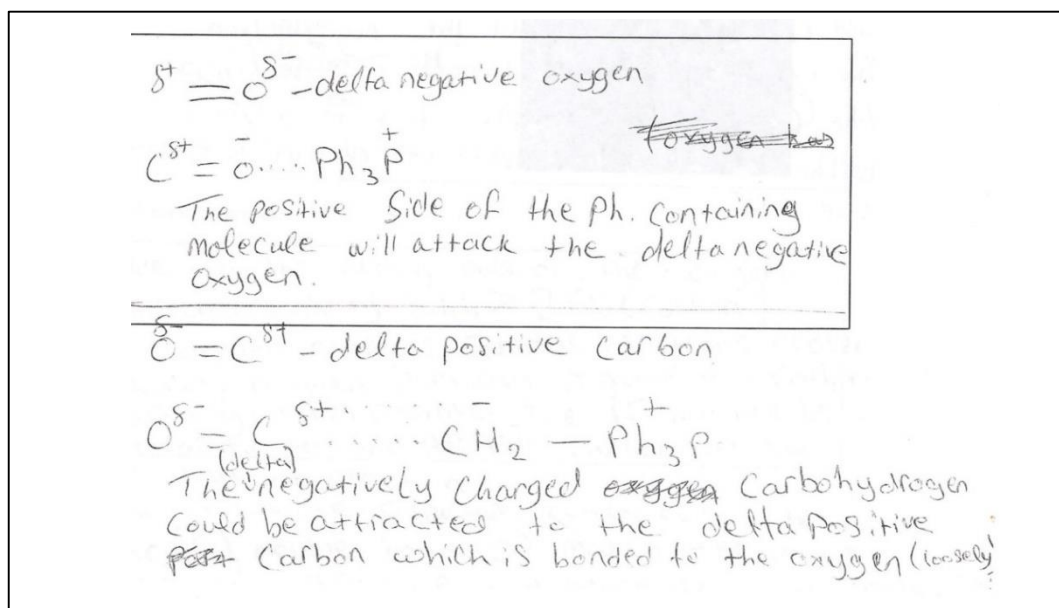 δ+ = O δ- – delta negative oxygen
C δ+ = O - ..... Ph3P +
The positive Side of the Ph. Containing
molecule will attack the delta negative
oxygen.
δ- O = C δ+ – delta positive carbon
O δ- = C δ+ .......... CH2 - — Ph3P +
(delta)
The negatively charged Carbohydrogen
could be attracted to the delta positive
Carbon which is bonded to the oxygen (loosely)